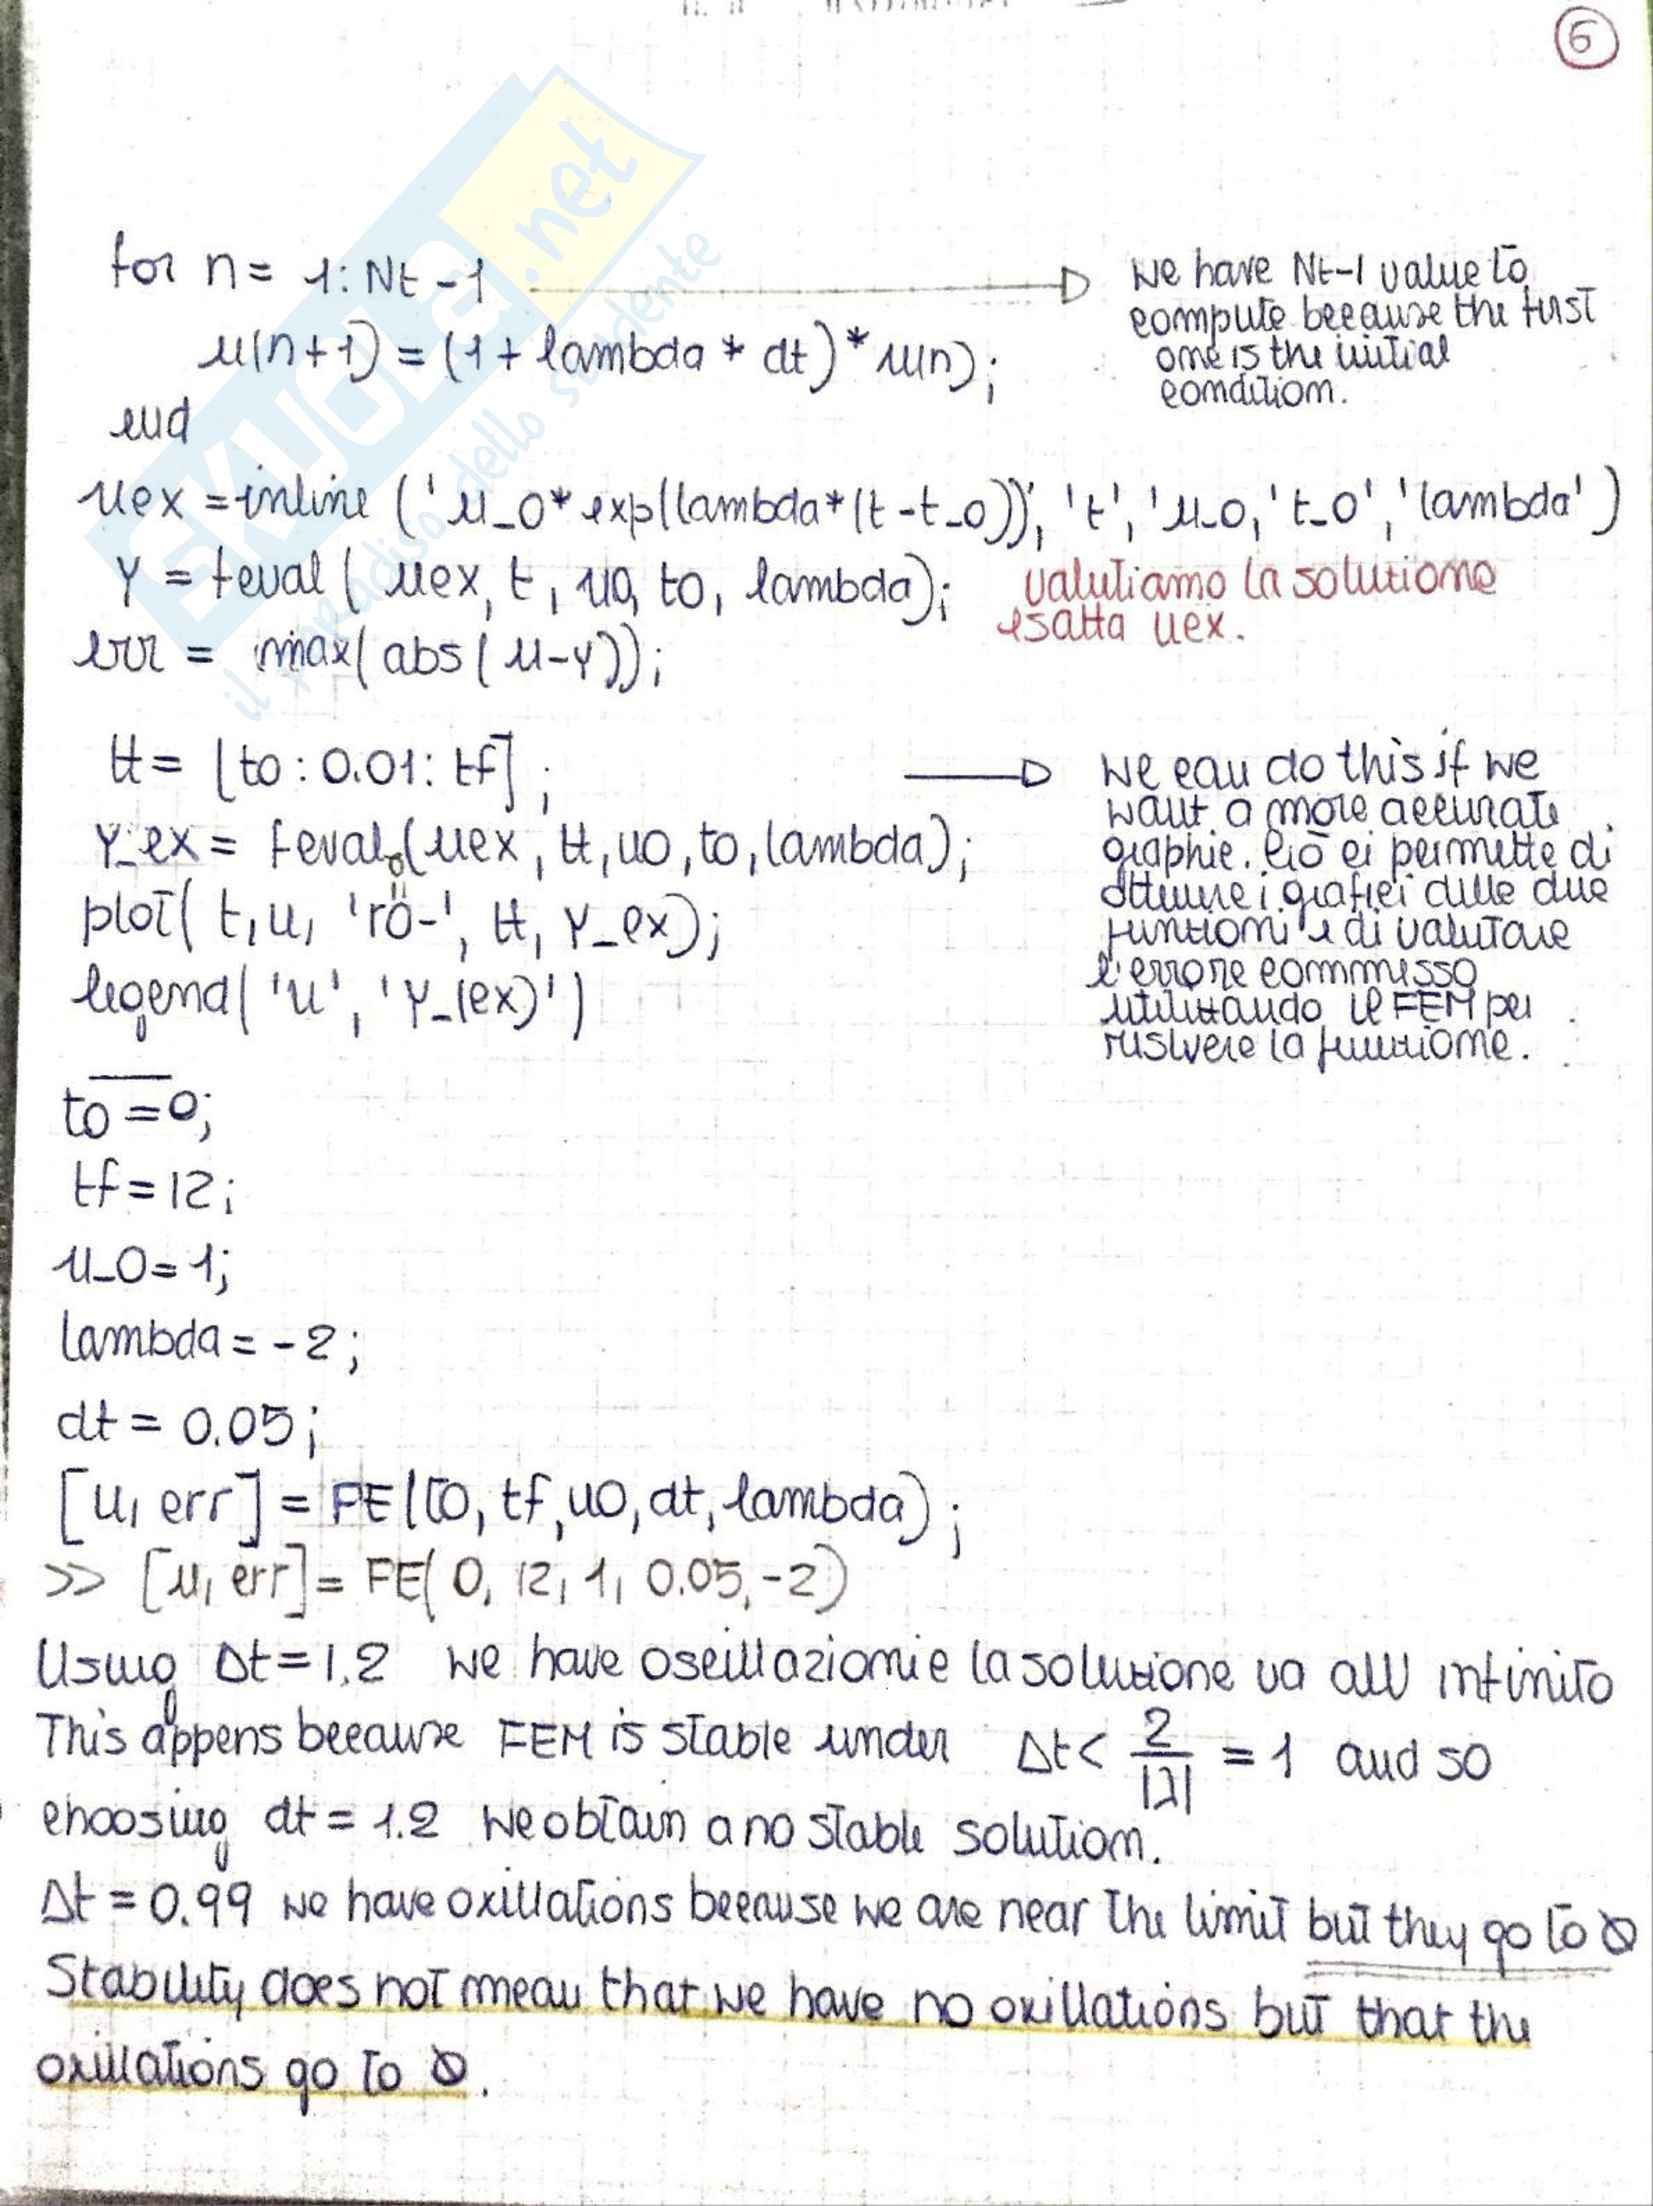 6
for n = 1:Nt-1
we have Nt-1 value to
compute because the first
one is the initial
condition.
u(n+1) = (1+lambda * dt)*u(n);
end
uex = inline ('u_0*exp(lambda*(t-t_0))', 't', 'u_0, 't_0', 'lambda')
Y = feval ( uex, t, u0, t0, lambda);
valutiamo la soluzione
esatta uex.
err = max(abs(u-Y));
tt = [t0:0.01:tf];
we can do this if we
want a more accurate
graphic. Ciò ci permette di
ottenere i grafici delle due
funzioni e di valutare
l'errore commesso
utilizzando il FEM per
risolvere la funzione.
Y_ex = feval(uex, tt, u0, t0, lambda);
plot( t, u, 'ro-', tt, Y_ex);
legend('u', 'Y_(ex)')
t0=0;
tf=12;
u_0=1;
lambda=-2;
dt = 0.05;
[u, err] = FE(t0, tf, u0, dt, lambda);
>> [u, err] = FE( 0, 12, 1, 0.05, -2)
Using Δt=1.2 we have oscillazioni e la soluzione va all' infinito
This appens because FEM is stable under Δt< 2/|λ| = 1 and so
choosing dt = 1.2 we obtain a no stable solution.
Δt = 0.99 we have oxillations because we are near the limit but they go to 0
Stability does not mean that we have no oxillations but that the
oxillations go to 0.
SKUOLA.net
il paradiso dello studente